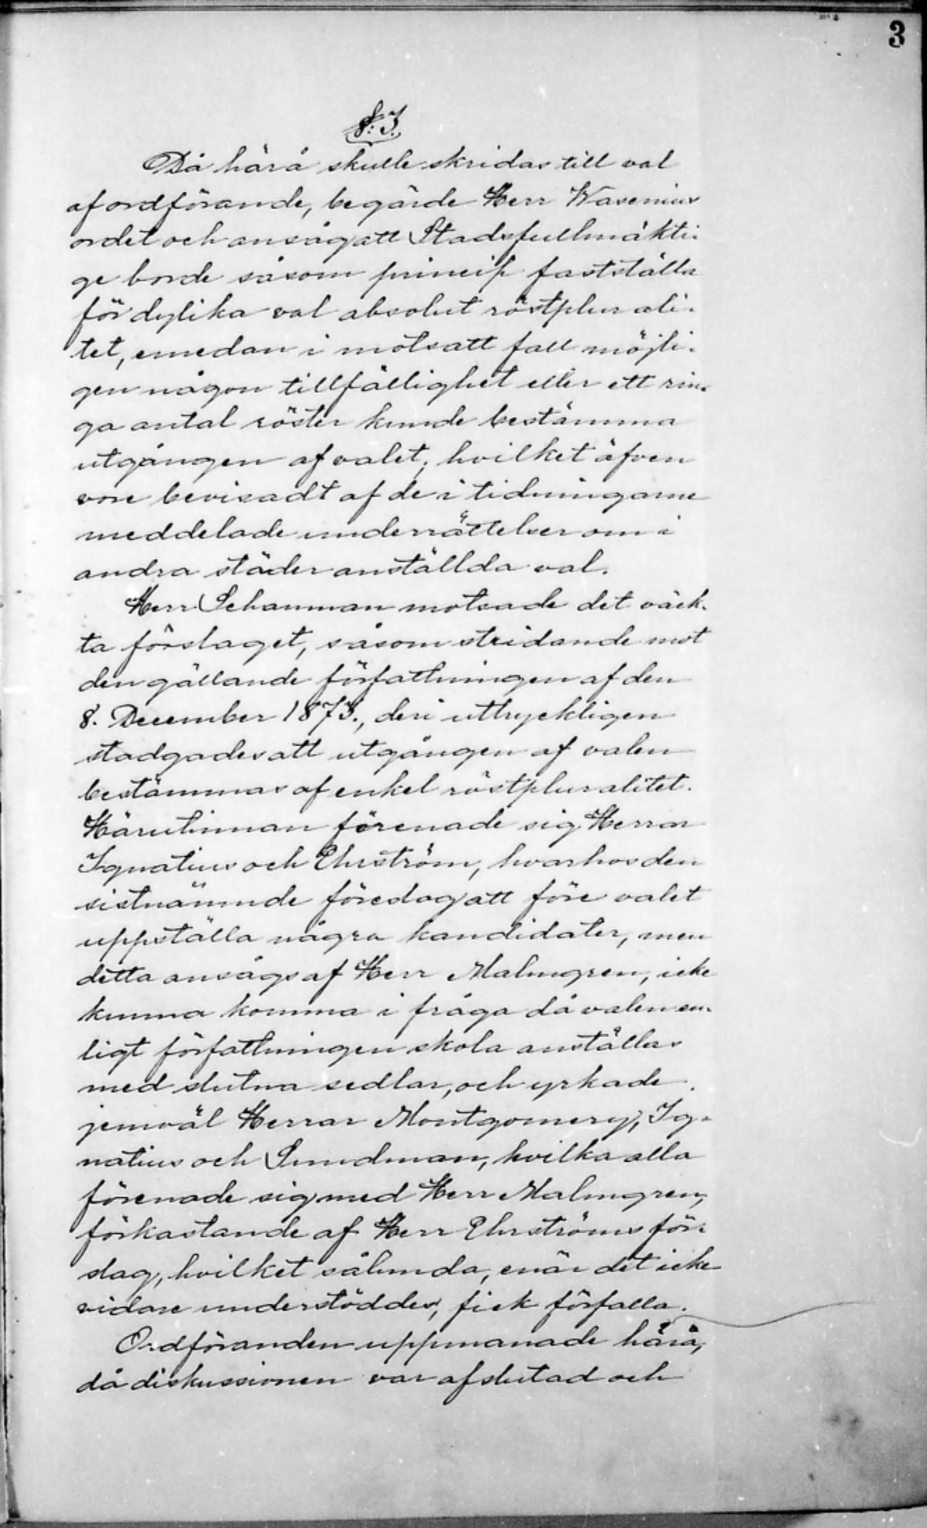 3
§: 3.
Då härå skulle skridas till val
af ordförande, begärde Herr Wasenius
ordet och ansåg att Stadsfullmäkti-
ge borde såsom princip fastställa
för dylika val absolut röstplurali-
tet, emedan i motsatt fall möjli-
gen någon tillfällighet eller ett rin-
ga antal röster kunde bestämma
utgången af valet, hvilket äfven
vore bevisadt af de i tidningarne
meddelade underrättelser om i
andra städer anställda val.
Herr Schauman motsade det väck-
ta förslaget, såsom stridande mot
den gällande författningen af den
8. December 1873., deri uttryckligen
stadgades att utgången af valen
bestämmas af enkel röstpluralitet.
Härutinnan förenade sig Herrar
Ignatius och Ehrström, hvarhos den
sistnämnde föreslog att före valet
uppställa några kandidater, men
detta ansågs af Herr Malmgren, icke
kunna komma i fråga då valen en-
ligt författningen skola anställas
med slutna sedlar, och yrkade
jemväl Herrar Montgomery, Ig-
natius och Sundman, hvilka alla
förenade sig med Herr Malmgren,
förkastande af Herr Ehrströms för-
slag, hvilket sålunda, enär det icke
vidare understöddes, fick förfalla.
Ordföranden uppmanade härå,
då diskussionen var afslutad och